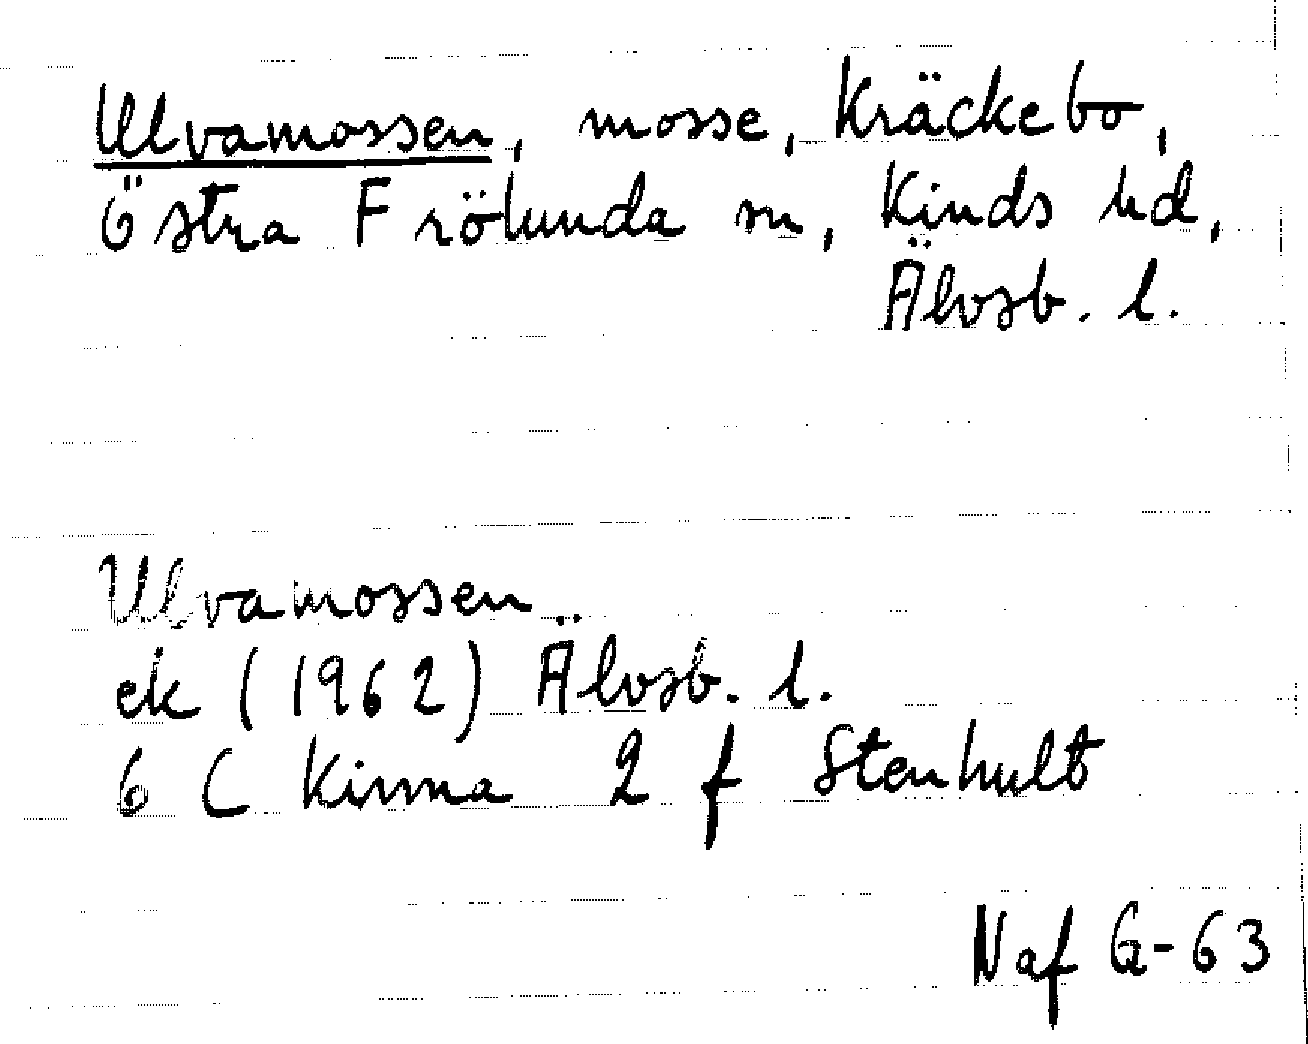 Ulvamossen, mosse, Kräckebo,
Östra Frölunda sn, Kinds hd,
Älvsb. l.
Ulvamossen
ek (1962) Älvsb. l.
6 C Kinna 2 f Stenhult
Naf G-63